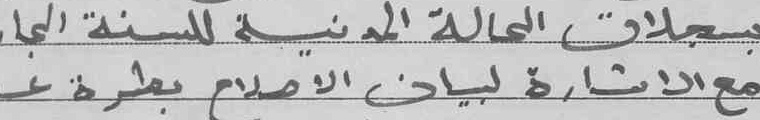 بسجلات الحالة المدنية للسنة الجا
مع الاشارة لبيان الاصلاح بطرة عـ